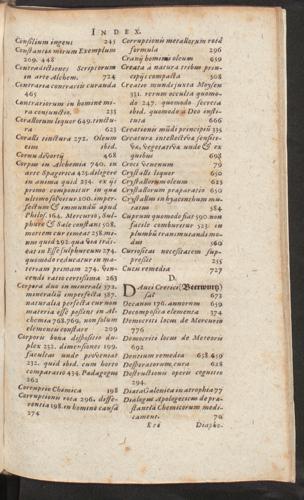 INDEX.
Consilium ingens 245
Constantis mirum Exemplum
209. 448
Contradictiones Scriptorum
in arte Alchem. 724
Contraria contrariis curanda
465
Contrariorum in homine mi-
ra conjunctio. 235
Corallorum liquor 649. tinctu-
ra 623
Coralli tinctura 272. Oleum
ibid.
Cornu 468
Corpus in Alchemia 740. in
arte Spagerica 425. diligere
in anima quid 234. ex iis
primo componitur in qua
ultimo solvitur 100. imper-
fectum & immundū apud
Philos. 164. Mercurio, Sul-
phure & Sale constans 508.
mortem cur timeat 258. me-
um quid 292.
eat in Esse sulphureum 274.
quomodo reducatur in ma-
teriam primam 274.
cendi ratio certissima 263
Corpora duo in minerali 572.
mineralia imperfecta 387.
naturalia perfecta cur non
materia esse possint in Al-
chemia 768. 769. non solum
elementis constare 209
Corporis bona dispositio du-
plex 232. dimensiones 199.
facultas unde proveniat
232. quid cum horto
comparatio 434. Padagogus
262
Corruptio Chemica 198
Corruptionis rota 296. diffe-
rentia 198. in homine causa
274
Corruptionis metallorum rota
formula 296
Cranij hominis oleum 659
Creata à natura tribus prin-
cipijs compacta 508
Creatio mundi juxta Moysen
331. rerum occulta quomo-
do 247. quomodo secreta
ibid. quomodo à Deo insti-
tuta 666
Creationis mūdi principiū 335
Creatura intellectiva sensiti-
va, vegetativa unde & ex
quibus 698
Croci Venerum 76
Crystalli liquor 650
Crystallorum oleum 623
Crystallorum praparatio 650
Crystallum in hyacinthum mu-
tatum 584
Cuprum quomodo fiat 590. non
facile comburitur 523. in
plumbū transmutandi mo-
dus 560
Curiositas necessitatem sup-
pressit 255
Cutis remedia 727
D.
Dauci Cretici (Beerwurtz)
sal 673
Decanus 176. annorum 659
Decomposita elementa 374
Democriti locus de Mercurio
776
Democriti locus de Meteoris
692
Dentium remedia 638. 659
Desperatorum, cura 628
Destructionis operis cognitio
294.
Diæta Galenica in atrophia 77
Dialogus Apologeticus de præ-
stantiâ Chemicorum medi-
cament. 70
Diapho-